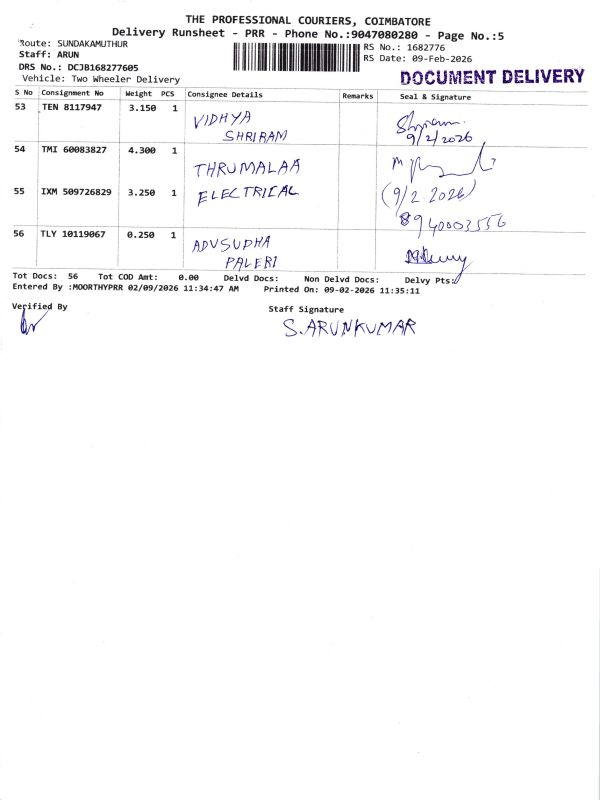 THE PROFESSIONAL COURIERS, COIMBATORE
Delivery Runsheet - PRR - Phone No.:9047080280 - Page No.:5
Route: SUNDAKAMUTHUR
Staff: ARUN
DRS No.: DCJB168277605
Vehicle: Two Wheeler Delivery
RS No.: 1682776
RS Date: 09-Feb-2026
DOCUMENT DELIVERY
S No Consignment No Weight PCS Consignee Details Remarks Seal & Signature
53 TEN 8117947 3.150 1 VIDHYA
SHRIRAM 9/2/2026
54 TMI 60083827 4.300 1 THRUMALAA
55 IXM 509726829 3.250 1 ELECTRICAL (9/2 2026)
8940003556
56 TLY 10119067 0.250 1 ADVSUDHA
PALERI
Tot Docs: 56 Tot COD Amt: 0.00 Delvd Docs: Non Delvd Docs: Delvy Pts:
Entered By :MOORTHYPRR 02/09/2026 11:34:47 AM Printed On: 09-02-2026 11:35:11
Verified By
Staff Signature
S.ARUNKUMAR